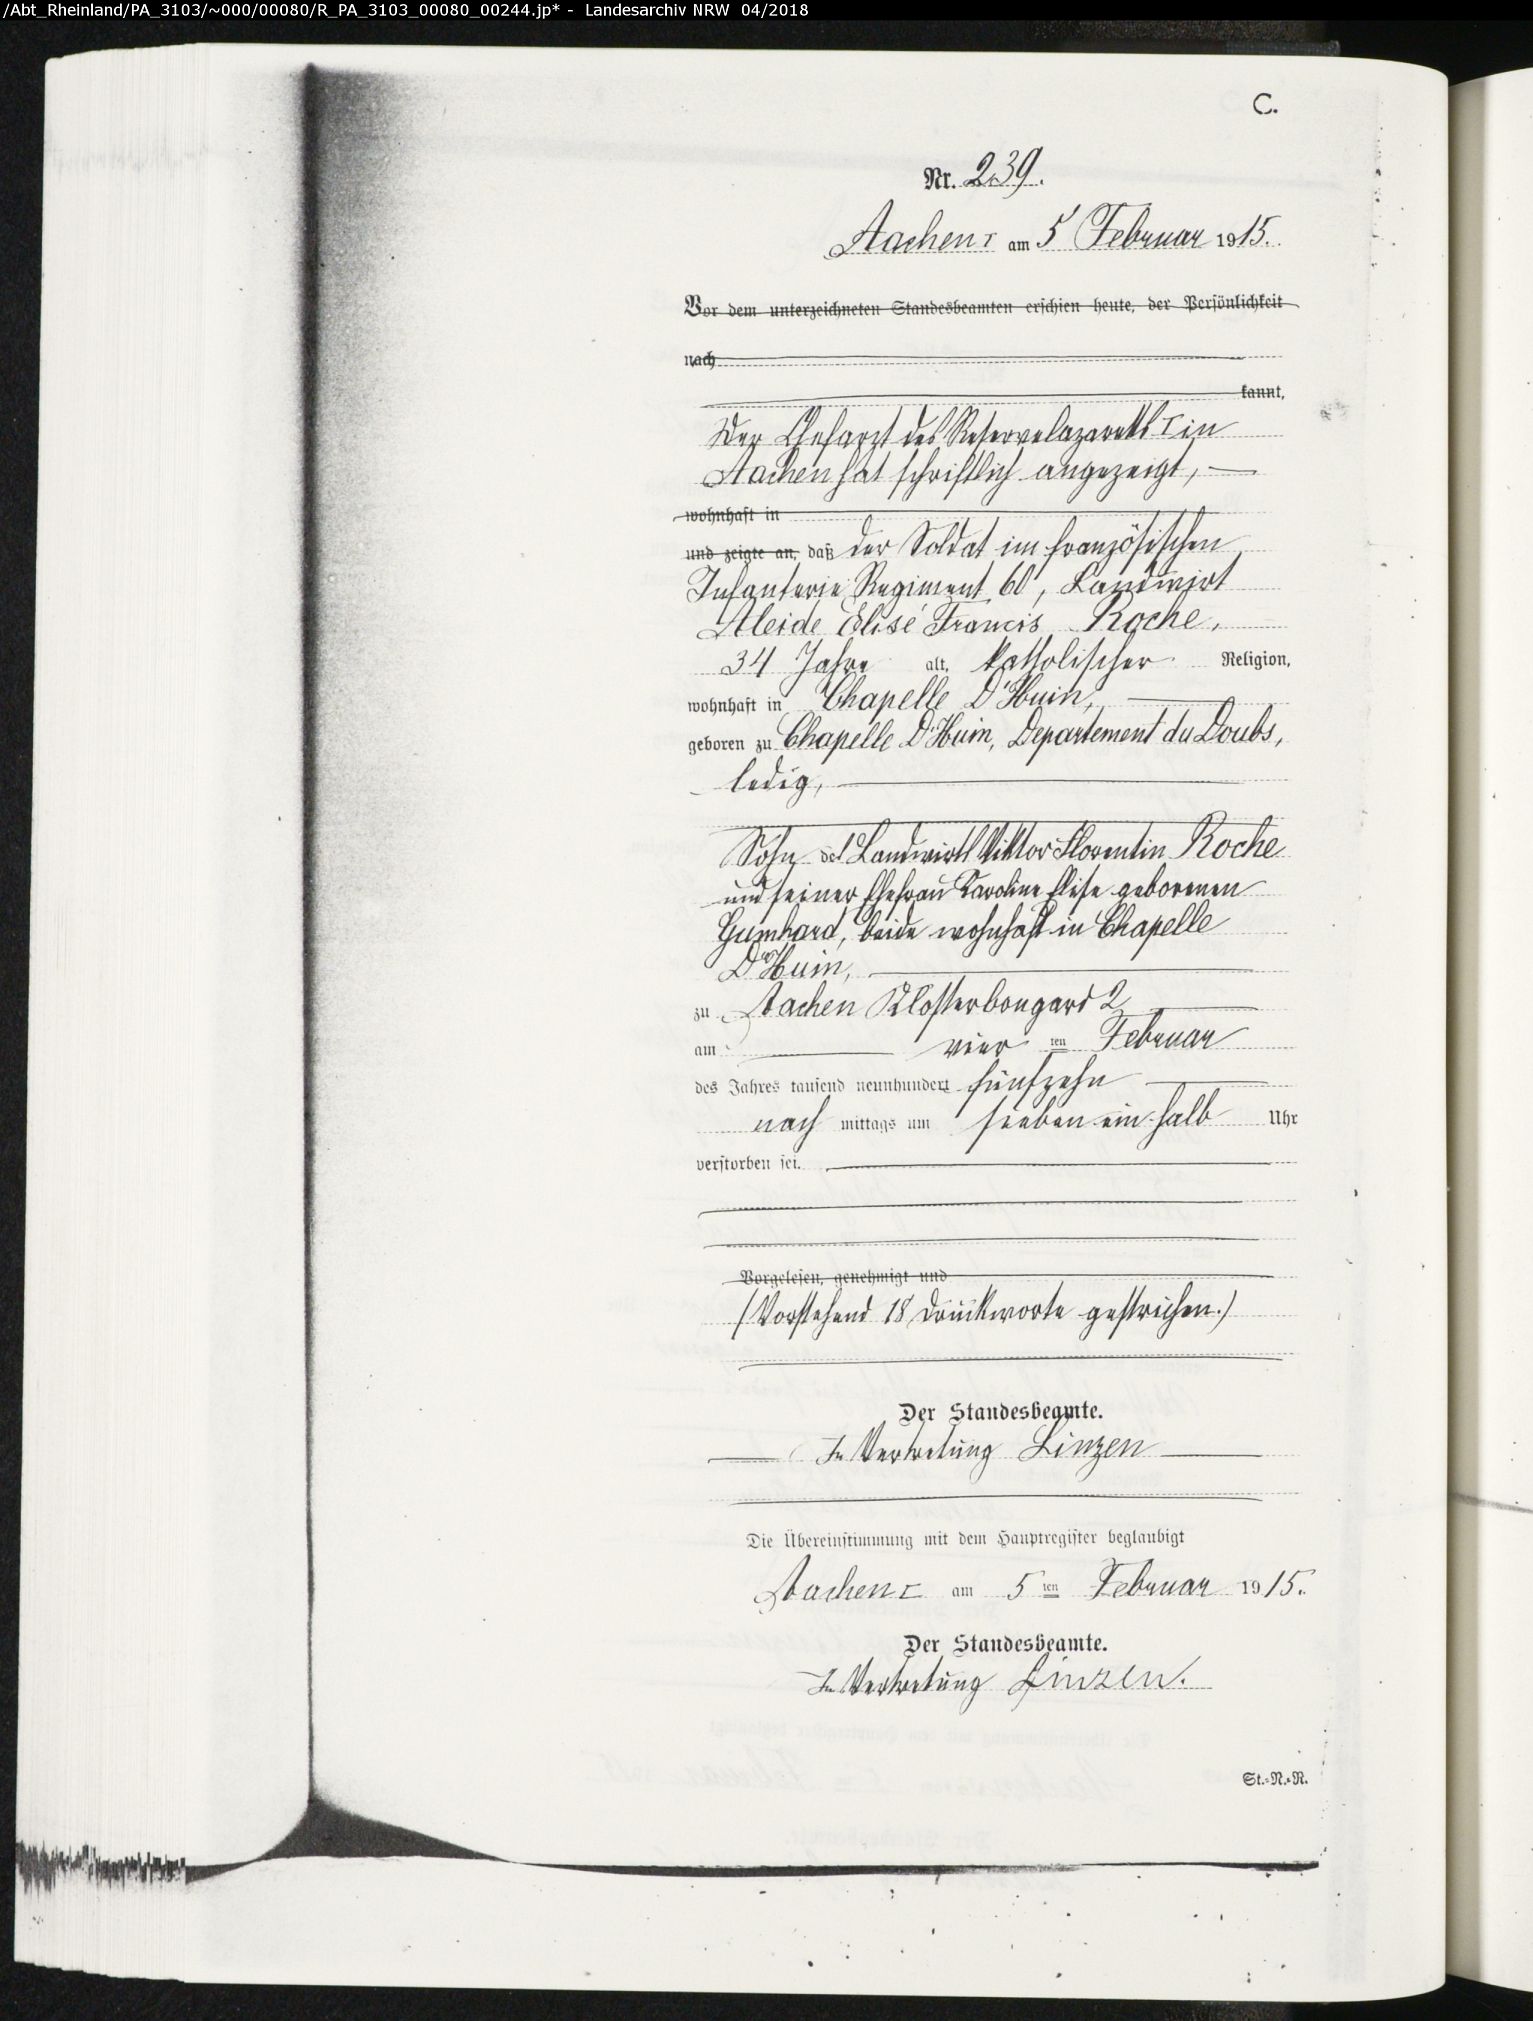 /Abt_Rheinland/PA_3103/~000/00080/R_PA_3103_00080_00244.jp* - Landesarchiv NRW 04/2018
C.
Nr. 239.
Aachen I am 5 Februar 1915.
Vor dem unterzeichneten Standesbeamten erschien heute, der Persönlichkeit
nach
kannt,
Der Chefarzt des Reservelazaretts I in
Aachen hat schriftlich angezeigt,
wohnhaft in
und zeigte an, daß der Soldat im französischen
Infanterie Regiment 60, Landwirt
Aleide Elisé Francis Roche,
34 Jahre alt, katholischer Religion,
wohnhaft in Chapelle D'Huin,
geboren zu Chapelle D'Huin, Departement du Doubs,
ledig,
Sohn des Landwirts Viktor Florentin Roche
und seiner Ehefrau Karoline Elise geborenen
beide wohnhaft in Chapelle
D'Huin,
zu Aachen Klosterbongard 2
am vier ten Februar
des Jahres tausend neunhundert fünfzehn
nach mittags um sieben ein halb Uhr
verstorben sei.
Vorgelesen, genehmigt und
(Vorstehend 18 Druckworte gestrichen.)
Der Standesbeamte.
In Vertretung Linzen
Die Übereinstimmung mit dem Hauptregister beglaubigt
Aachen I am 5 ten Februar 1915.
Der Standesbeamte.
In Vertretung Linzen.
St.=N.=R.